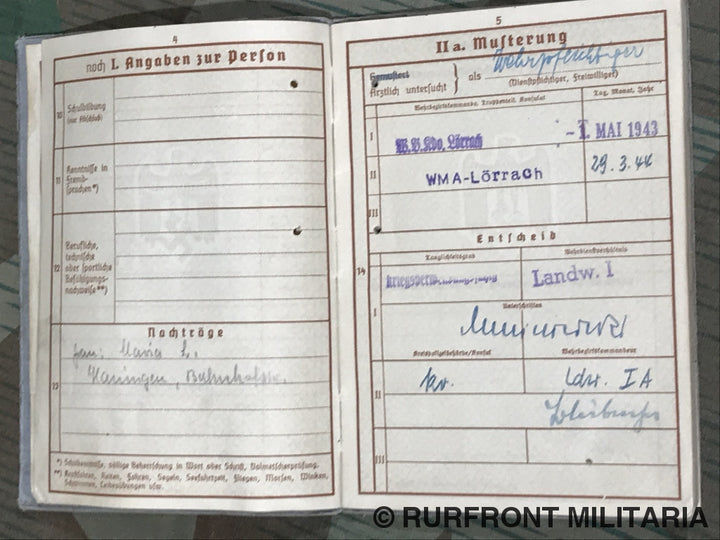 4
noch I. Angaben zur Person
10 Schulbildung
(nur Abschluß)
11 Kenntnisse in
Fremd-
sprachen *)
12 Berufliche,
technische
oder sportliche
Befähigungs-
nachweise **)
Nachträge
13
Maria L.
*) Schreibweise, völlige Beherrschung in Wort oder Schrift, Dolmetscherprüfung.
**) Kraftfahren, Reiten, Fahren, Segeln, Seefahrtzeit, Fliegen, Morsen, Winken,
Schwimmen, Leibesübungen usw.
5
II a. Musterung
Gemustert
Ärztlich untersucht } als Wehrpflichtiger
(Dienstpflichtiger, Freiwilliger)
Wehrbezirkskommando, Truppenteil, Konsulat
Tag, Monat, Jahr
I W.B.Kdo. Lörrach -1. MAI 1943
II WMA-Lörrach 29.3.44
III
Entscheid
Tauglichkeitsgrad Wehrdienstverhältnis
14
Landw. I
Unterschriften
I
Kreispolizeibehörde/Konsul Wehrbezirkskommandeur
II kv. Ldw. I A
III
© RURFRONT MILITARIA